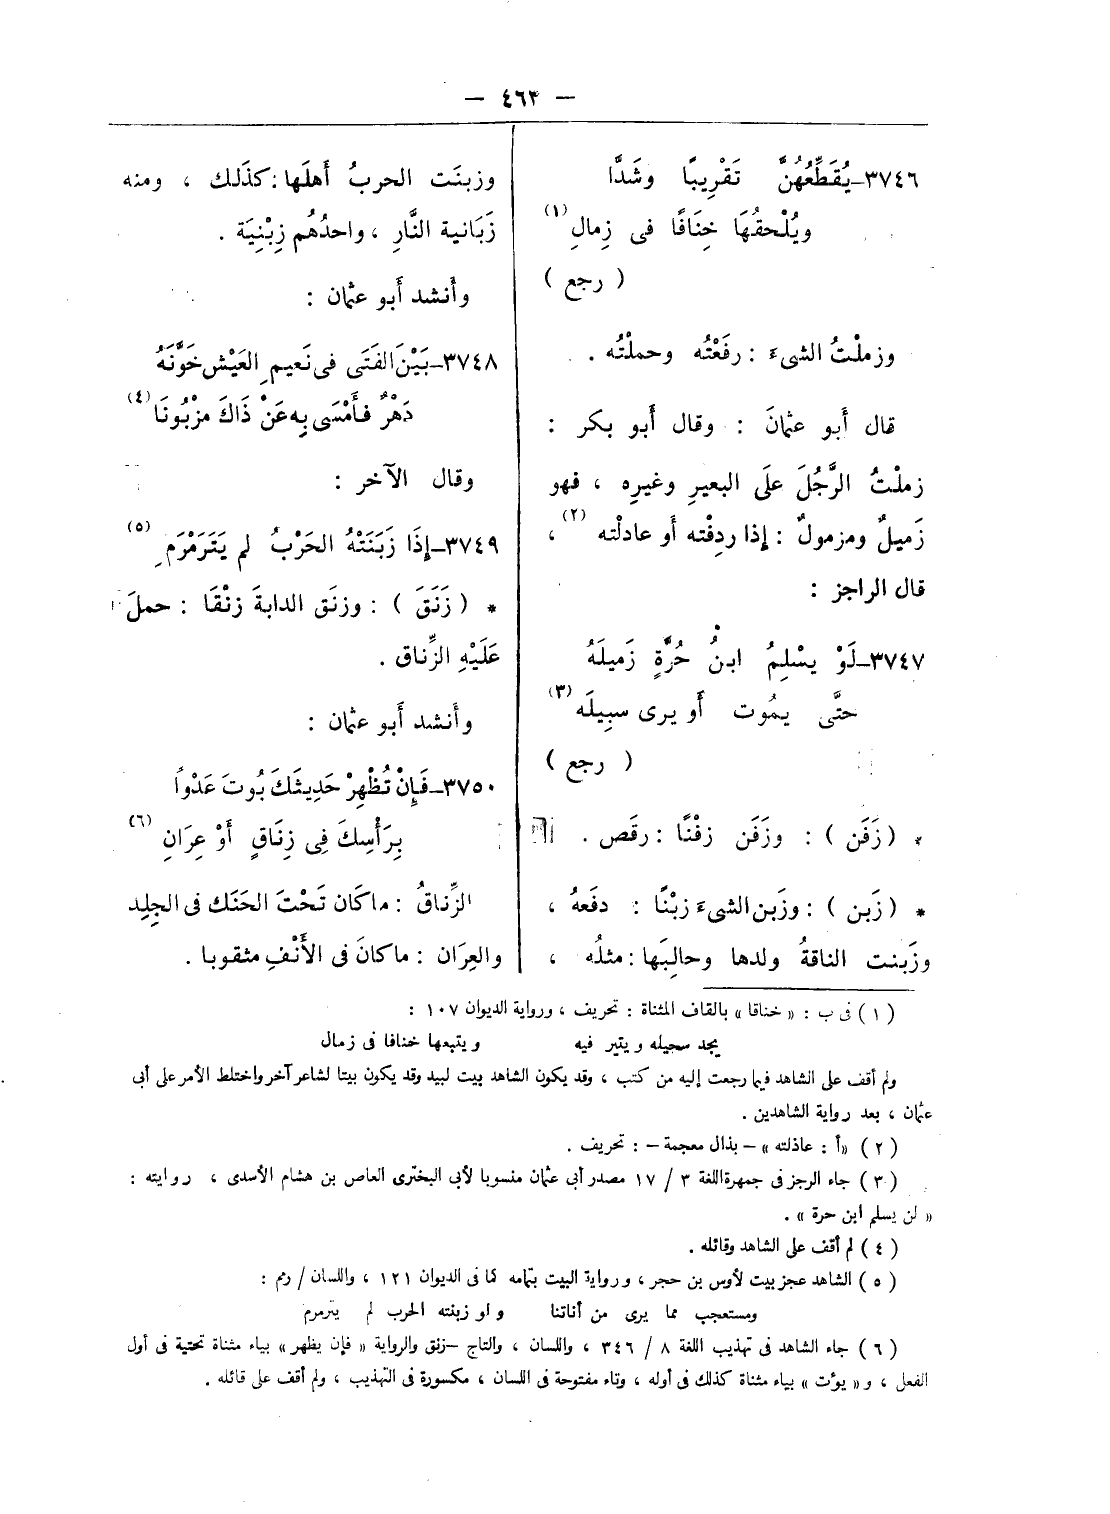 — ٤٦٣ —
٣٧٤٦ـ يُقَطِّعُهُنَّ تَقْرِيبًا وشَدًّا
ويُلْحقُهَا خِنَافًا فى زِمالِ (١)
( رجع )
وزملْتُ الشىءَ : رفَعْتُه وحملْتُه .
قال أَبو عثمانَ : وقال أَبو بكر :
زملْتُ الرَّجُلَ علَى البعيرِ وغيرِه ، فهو
زَميلٌ ومزمولٌ : إِذا ردِفْته أَو عادلْته (٢) ،
قال الراجز :
٣٧٤٧ـ لَوْ يسْلِمُ ابنُ حُرَّةٍ زَميلَهُ
حتَّى يمُوت أَو يرى سبِيلَه (٣)
( رجع )
* ( زَفَن ) : وزَفَن زفْنًا : رقَص .
* ( زَبن ) : وزَبن الشىءَ زبْنًا : دفَعهُ ،
وزَبنت الناقةُ ولدها وحالِبَها : مثلُه ،
وزبنَت الحربُ أَهلَها : كذَلك ، ومنه
زَبَانية النَّارِ ، واحدُهُم زِبْنِيَة .
وأَنشد أَبو عثمان :
٣٧٤٨ـ بَيْنَ الفَتَى فى نَعيمِ العَيْشِ خَوَّنَهُ
دَهْرٌ فأَمْسَى بِهِ عَنْ ذَاكَ مزْبُونَا (٤)
وقال الآخر :
٣٧٤٩ـ إِذَا زَبَنَتْهُ الحَرْبُ لم يَتَرَمْرَمِ (٥)
* ( زَنَقَ ) : وزنَق الدابةَ زنْقَا : حملَ
عَلَيْهِ الزِّناق .
وأَنشد أَبو عثمان :
٣٧٥٠ـ فَإِنْ تُظْهِرْ حَدِيثَكَ بُوتَ عَدْوًا
بِرَأْسِكَ فِى زِنَاقٍ أَوْ عِرَانِ (٦)
الزِّناقُ : ماكَان تَحْتَ الحَنَك فى الجِلِد
والعِرَان : ماكانَ فى الأَنْفِ مثقوبا .
( ١ ) فى ب : « خناقا » بالقاف المثناة : تحريف ، ورواية الديوان ١٠٧ :
يجد سحيله ويتير فيه ويتبعها خنافا فى زمال
ولم أقف على الشاهد فيما رجعت إليه من كتب ، وقد يكون الشاهد بيت لبيد وقد يكون بيتا لشاعر آخر واختلط الأمر على أبى
عثمان ، بعد رواية الشاهدين .
( ٢ ) « أ : عاذلته » – بذال معجمة – : تحريف .
( ٣ ) جاء الرجز فى جمهرة اللغة ٣ / ١٧ مصدر أبى عثمان منسوبا لأبى البخترى العاص بن هشام الأسدى ، روايته :
« لن يسلم ابن حرة » .
( ٤ ) لم أقف على الشاهد وقائله .
( ٥ ) الشاهد عجز بيت لأوس بن حجر ، ورواية البيت بتمامه كما فى الديوان ١٢١ ، واللسان / رمم :
ومستعجب مما يرى من أناتنا ولو زبنته الحرب لم يترمرم
( ٦ ) جاء الشاهد فى تهذيب اللغة ٨ / ٣٤٦ ، واللسان ، والتاج – زنق والرواية « فإن يظهر » بياء مثناة تحتية فى أول
الفعل ، و « يؤت » بياء مثناة كذلك فى أوله ، وتاء مفتوحة فى اللسان ، مكسورة فى التهذيب ، ولم أقف على قائله .